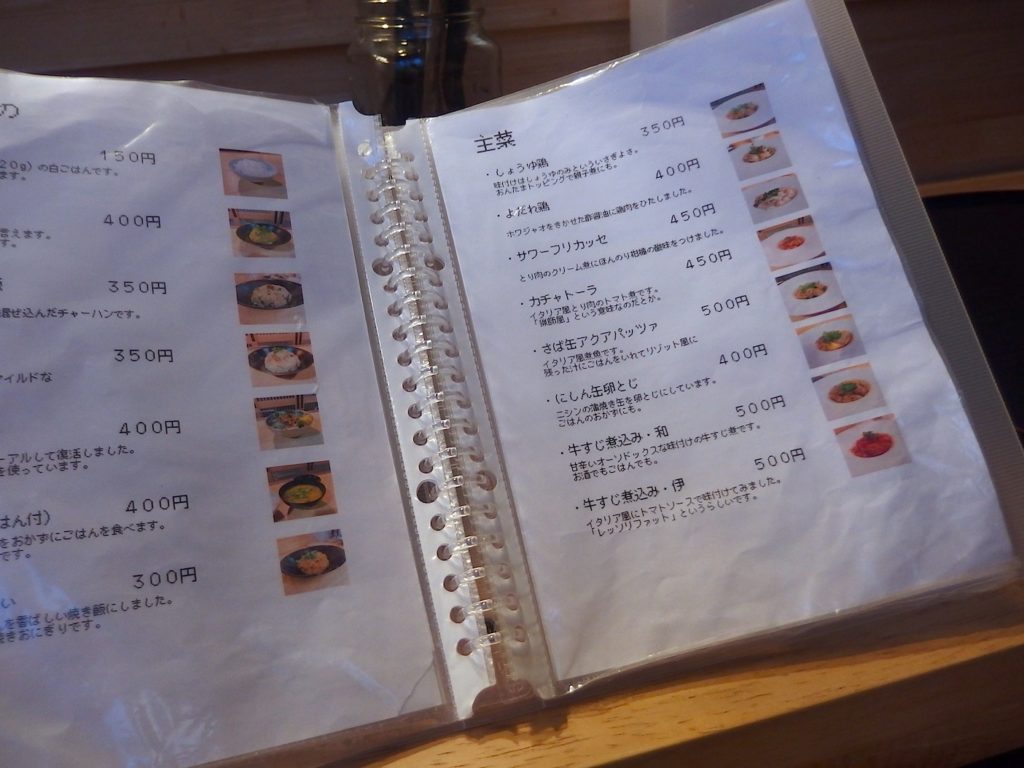 の
150円
20g）の白ごはんです。
ます。
400円
言えます。
す。
350円
混ぜ込んだチャーハンです。
350円
マイルドな
400円
ーアルして復活しました。
を使っています。
はん付）
400円
をおかずにごはんを食べます。
です。
い
300円
を香ばしい焼き飯にしました。
焼きおにぎりです。
主菜
・しょうゆ鶏
350円
味付けはしょうゆのみといういさぎよさ。
おんたまトッピングで親子煮にも。
・よだれ鶏
400円
ホワジャオをきかせた酢醤油に鶏肉をひたしました。
・サワーフリカッセ
450円
とり肉のクリーム煮にほんのり柑橘の酸味をつけました。
・カチャトーラ
450円
イタリア風とり肉のトマト煮です。
「猟師風」という意味なのだとか。
・さば缶アクアパッツァ
500円
イタリア風煮魚です。
残った汁にごはんをいれてリゾット風に
・にしん缶卵とじ
400円
ニシンの蒲焼き缶を卵とじにしています。
ごはんのおかずにも。
・牛すじ煮込み・和
500円
甘辛いオーソドックスな味付けの牛すじ煮です。
お酒でもごはんでも。
・牛すじ煮込み・伊
500円
イタリア風にトマトソースで味付けてみました。
「レッソリファット」というらしいです。